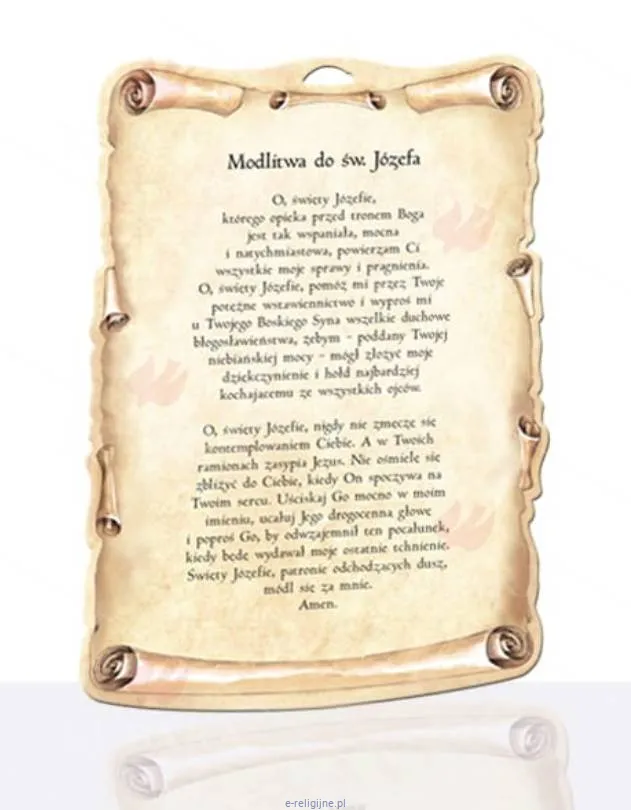 Modlitwa do św. Józefa
O, święty Józefie,
którego opieka przed tronem Boga
jest tak wspaniała, mocna
i natychmiastowa, powierzam Ci
wszystkie moje sprawy i pragnienia.
O, święty Józefie, pomóż mi przez Twoje
potężne wstawiennictwo i wyproś mi
u Twojego Boskiego Syna wszelkie duchowe
błogosławieństwa, żebym - poddany Twojej
niebiańskiej mocy - mógł złożyć moje
dziękczynienie i hołd najbardziej
kochającemu ze wszystkich ojców.
O, święty Józefie, nigdy nie zmęczę się
kontemplowaniem Ciebie. A w Twoich
ramionach zasypia Jezus. Nie ośmielę się
zbliżyć do Ciebie, kiedy On spoczywa na
Twoim sercu. Uściskaj Go mocno w moim
imieniu, ucałuj Jego drogocenną głowę
i poproś Go, by odwzajemnił ten pocałunek,
kiedy będę wydawał moje ostatnie tchnienie.
Święty Józefie, patronie odchodzących dusz,
módl się za mnie.
Amen.
e-religijne.pl